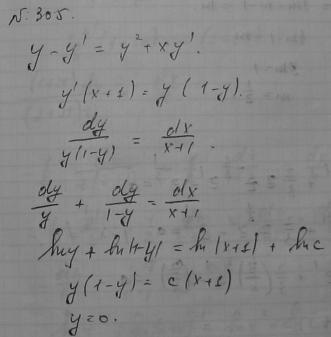 N: 305.
y - y' = y² + xy'.
y'(x+1) = y(1-y).
dy/y(1-y) = dx/x+1.
dy/y + dy/1-y = dx/x+1
ln y + ln|1-y| = ln|x+1| + ln c
y(1-y) = c(x+1)
y=0.